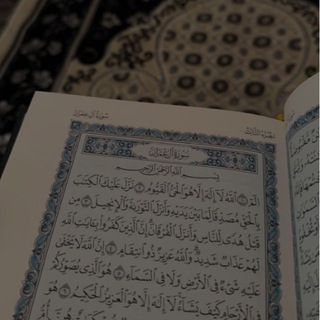 سُورَةُ آلِ عِمْرَانَ
الجُزْءُ الثَّالِثُ
سُورَةُ آلِ عِمْرَانَ
بِسْمِ اللَّهِ الرَّحْمَٰنِ الرَّحِيمِ
الٓمٓ ۝١ اللَّهُ لَآ إِلَٰهَ إِلَّا هُوَ الْحَيُّ الْقَيُّومُ ۝٢ نَزَّلَ عَلَيْكَ الْكِتَٰبَ
بِالْحَقِّ مُصَدِّقًا لِّمَا بَيْنَ يَدَيْهِ وَأَنزَلَ التَّوْرَىٰةَ وَالْإِنجِيلَ ۝٣ مِن
قَبْلُ هُدًى لِّلنَّاسِ وَأَنزَلَ الْفُرْقَانَ إِنَّ الَّذِينَ كَفَرُوا بِـَٔايَٰتِ اللَّهِ
لَهُمْ عَذَابٌ شَدِيدٌ وَاللَّهُ عَزِيزٌ ذُو انتِقَامٍ ۝٤ إِنَّ اللَّهَ لَا يَخْفَىٰ
عَلَيْهِ شَىْءٌ فِي الْأَرْضِ وَلَا فِي السَّمَآءِ ۝٥ هُوَ الَّذِي يُصَوِّرُكُمْ
فِي الْأَرْحَامِ كَيْفَ يَشَآءُ لَآ إِلَٰهَ إِلَّا هُوَ الْعَزِيزُ الْحَكِيمُ ۝٦ هُوَ